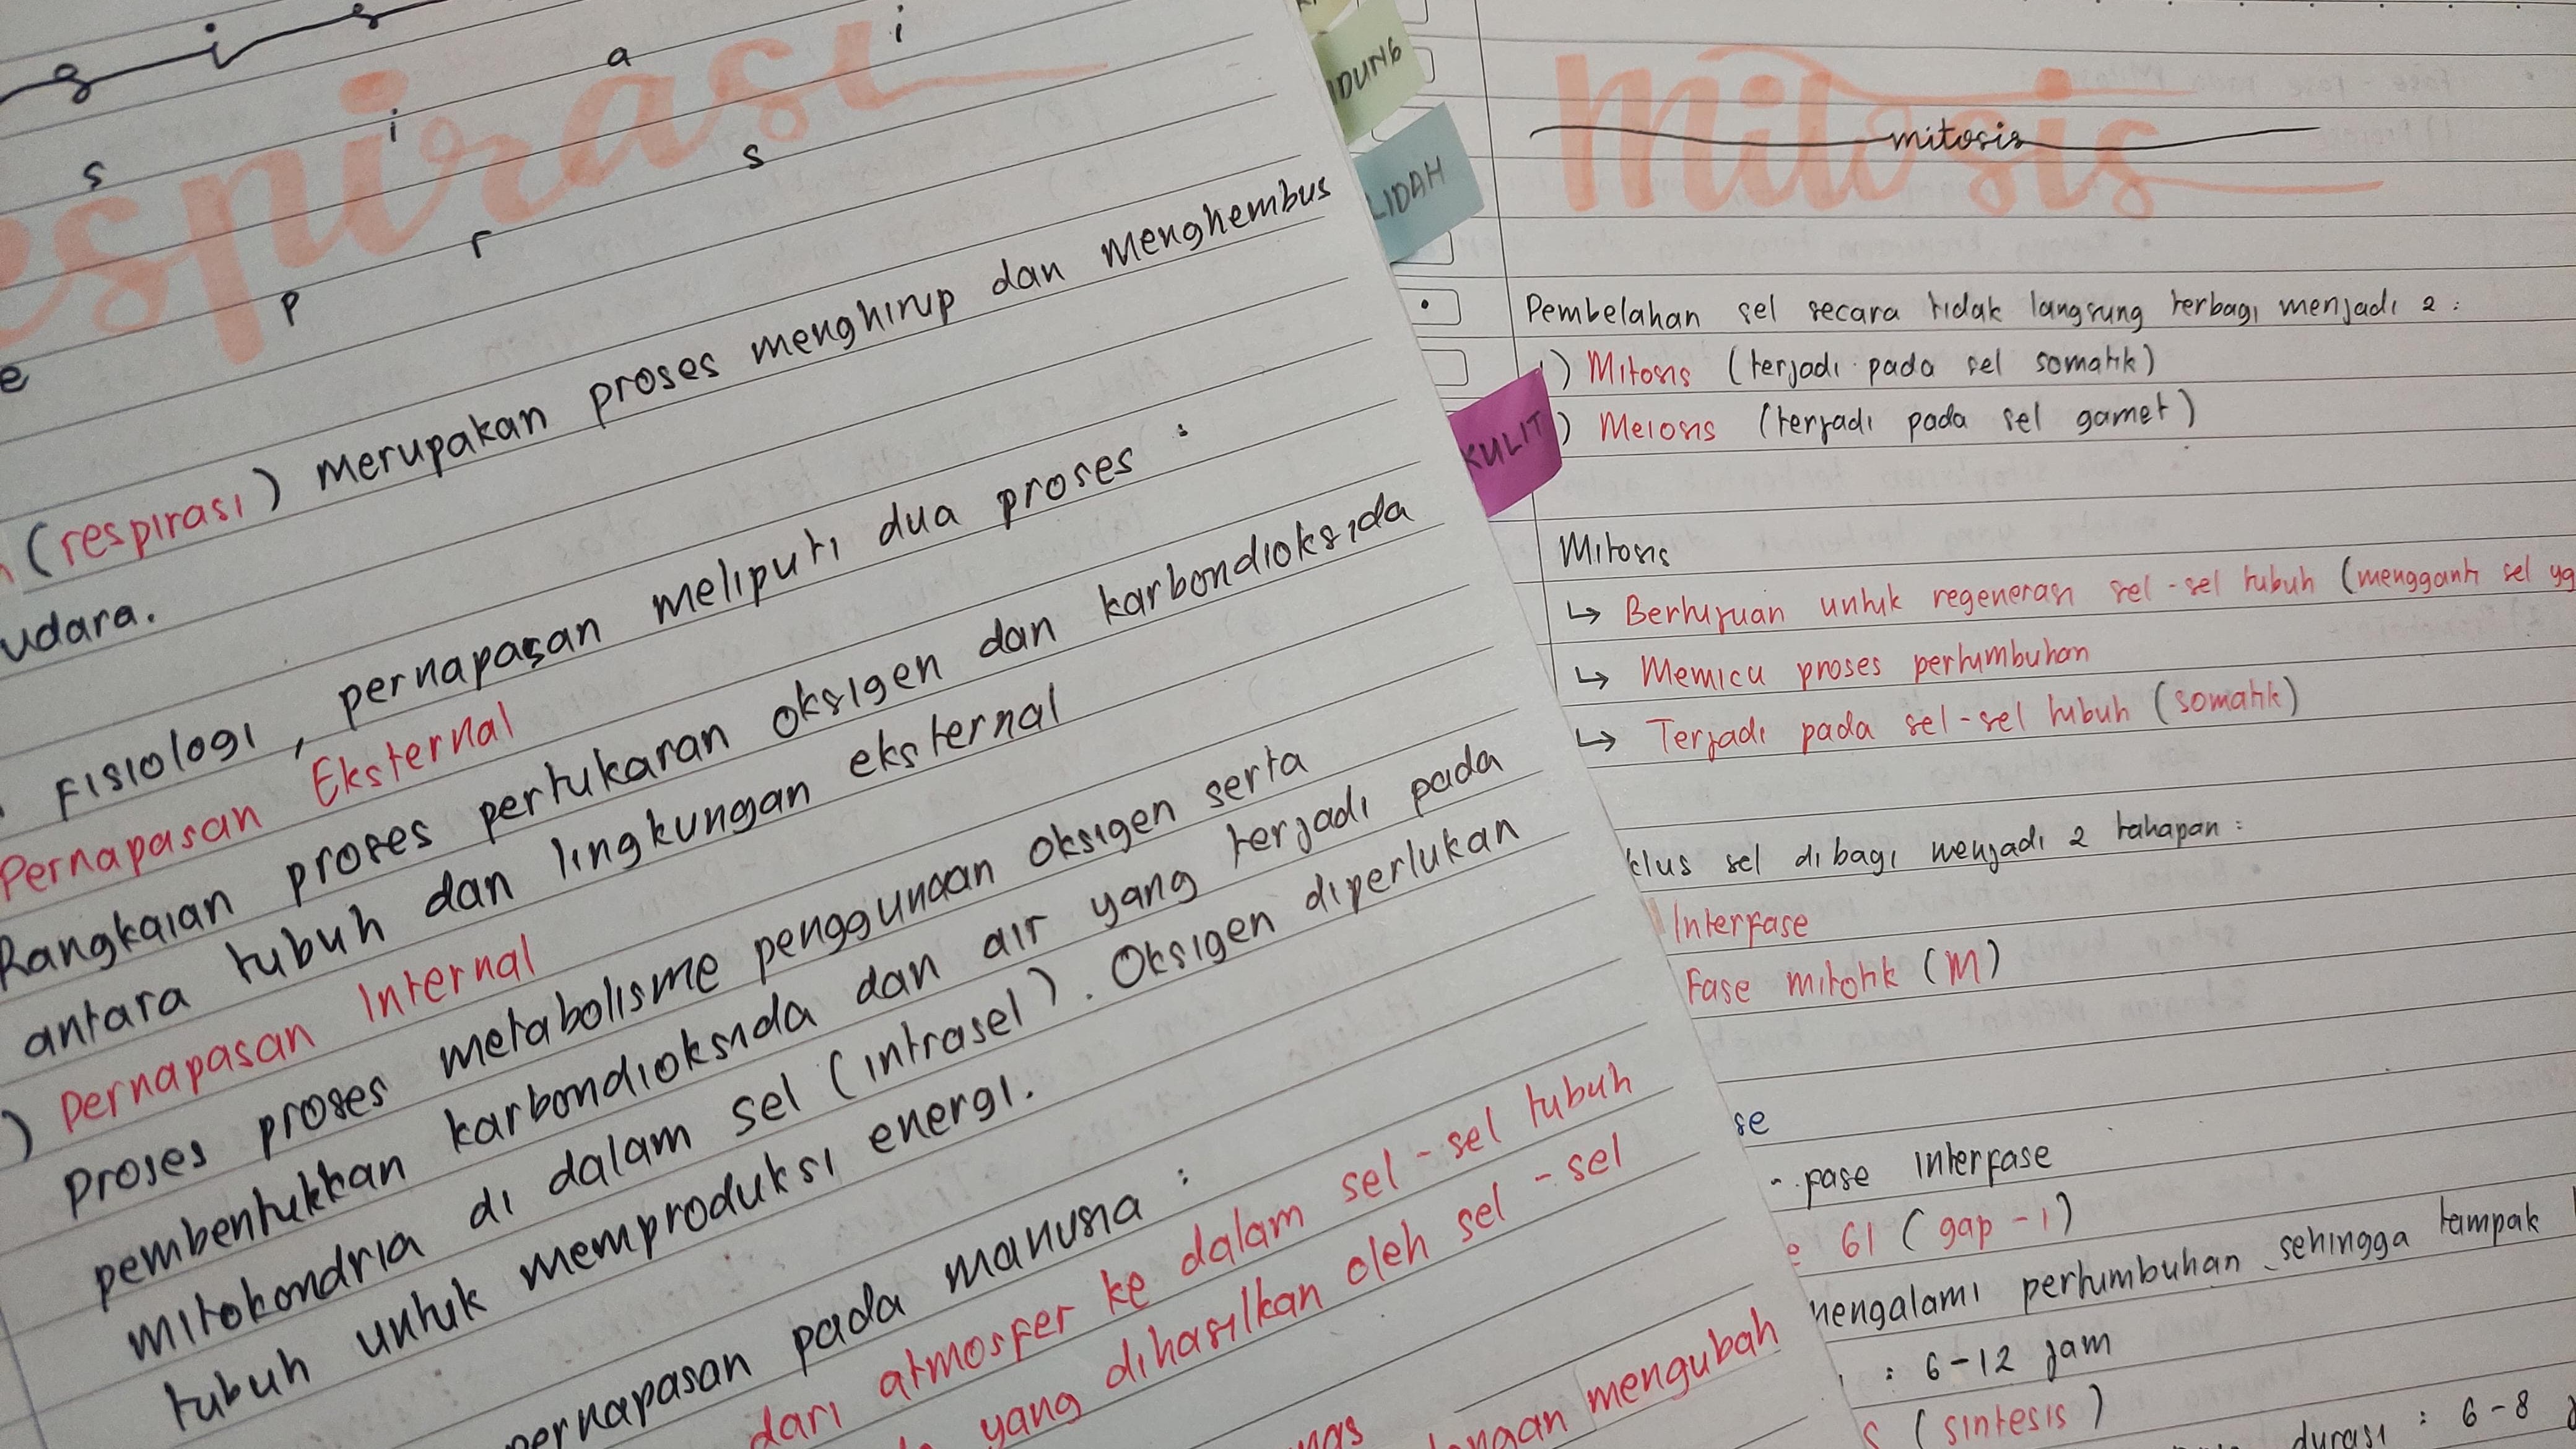 espirasi
g i s
e s p i r a s i
(respirasi) merupakan proses menghirup dan menghembus
udara.
Fisiologi, pernapasan meliputi dua proses :
Pernapasan Eksternal
Rangkaian proses pertukaran oksigen dan karbondioksida
antara tubuh dan lingkungan eksternal
) Pernapasan Internal
Proses proses metabolisme penggunaan oksigen serta
pembentukkan karbondioksida dan air yang terjadi pada
mitokondria di dalam sel (intrasel). Oksigen diperlukan
tubuh untuk memproduksi energi.
pernapasan pada manusia :
dari atmosfer ke dalam sel-sel tubuh
yang dihasilkan oleh sel-sel
dengan mengubah
IDUNG
LIDAH
KULIT
Mitosis
mitosis
Pembelahan sel secara tidak langsung terbagi menjadi 2 :
1) Mitosis (terjadi pada sel somatik)
) Meiosis (terjadi pada sel gamet)
Mitosis
↳ Bertujuan untuk regenerasi sel-sel tubuh (mengganti sel yg
↳ Memicu proses pertumbuhan
↳ Terjadi pada sel-sel tubuh (somatik)
klus sel dibagi menjadi 2 tahapan :
Interfase
Fase mitotik (M)
se
- fase interfase
e G1 (gap-1)
mengalami pertumbuhan sehingga tampak
: 6-12 jam
S (sintesis)
durasi : 6-8 j